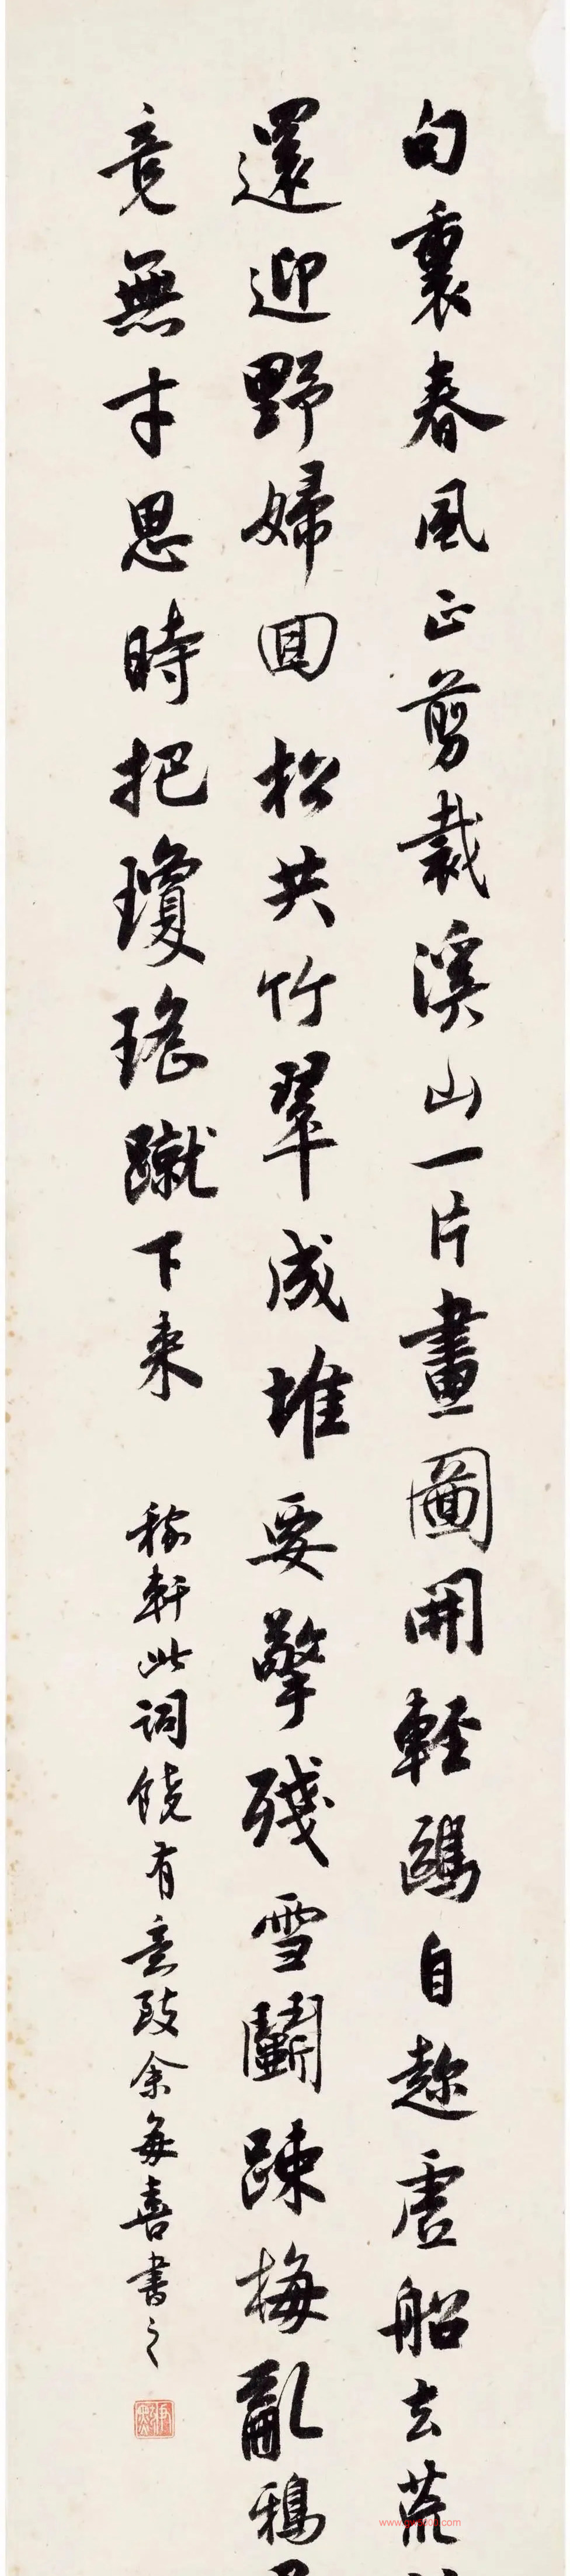 句裏春風正剪裁溪山一片畫圖開輕鷗自趂虛船去荒
還迎野婦回松共竹翠成堆要擎殘雪鬪踈梅亂鴉
竟無才思時把瓊瑤蹴下来
稼軒此詞饒有意致余每喜書之